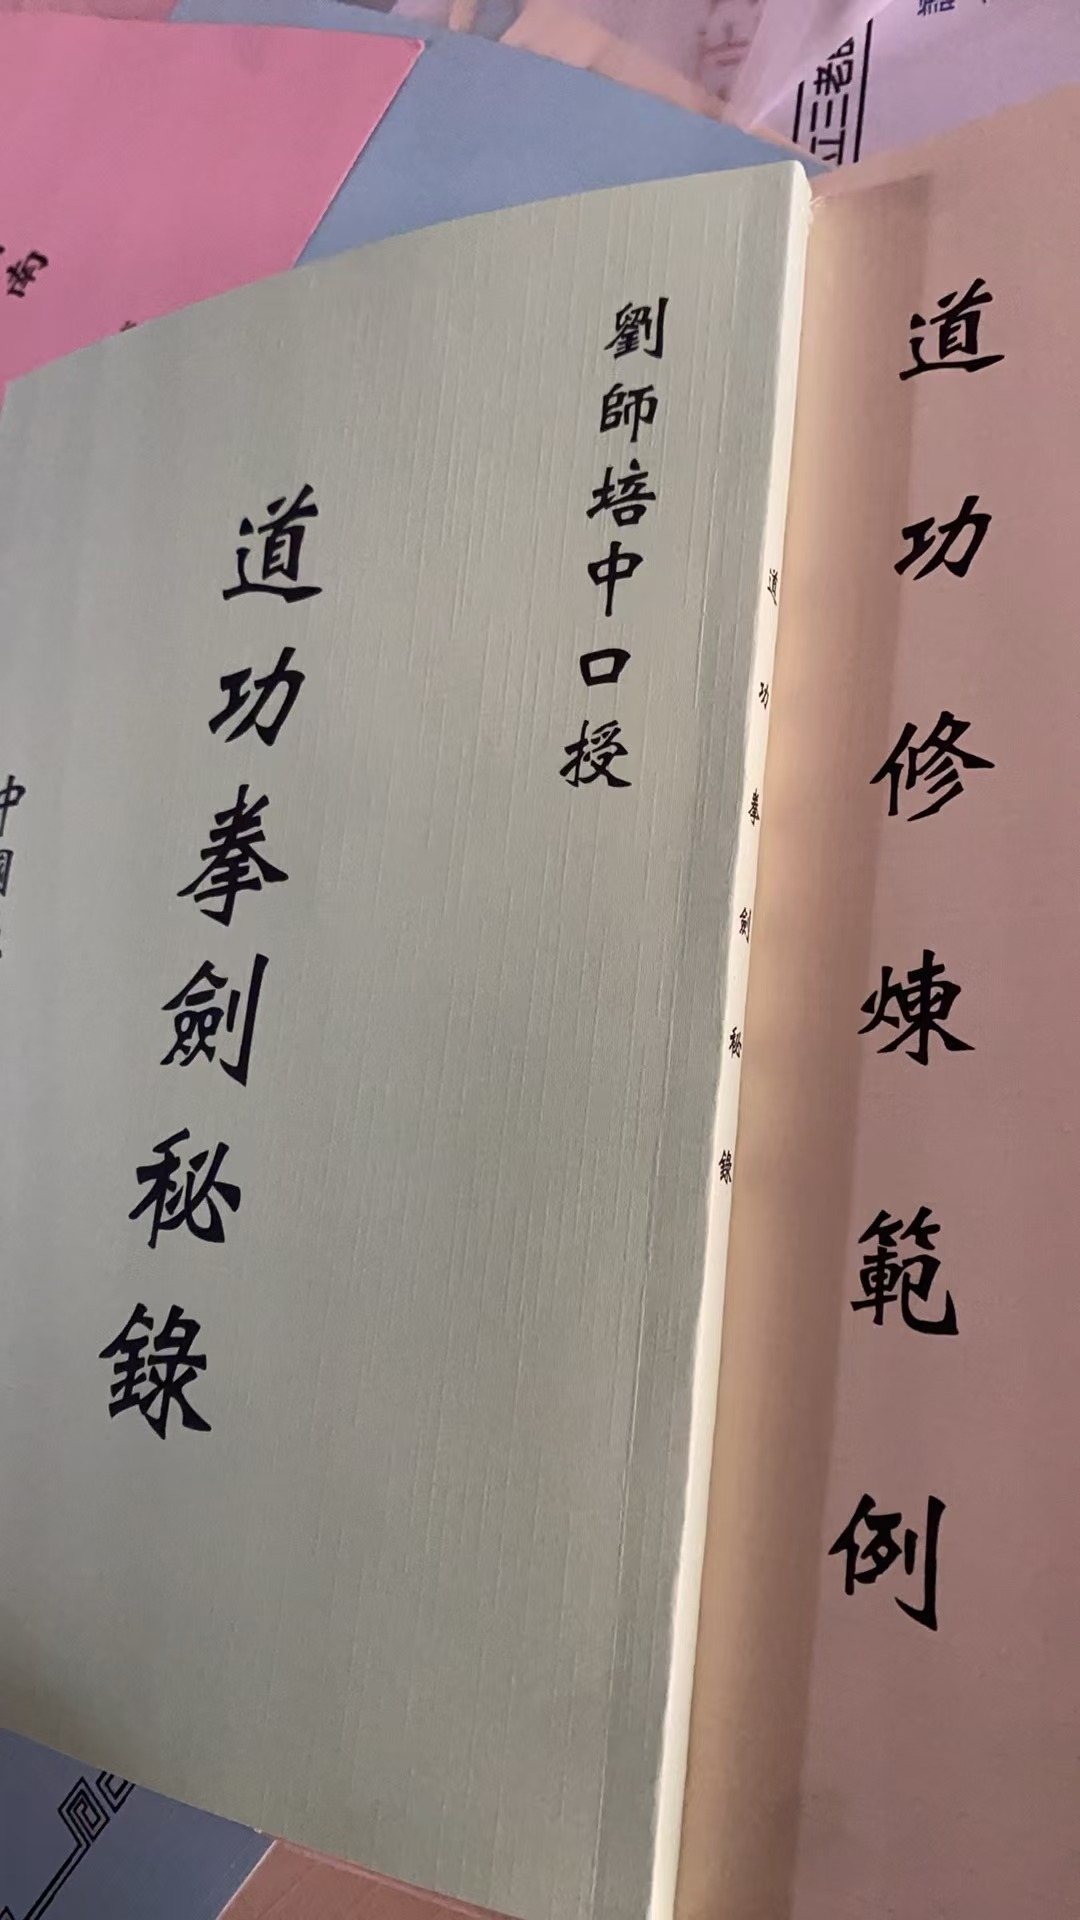 道功修煉範例
劉師培中口授
道功拳劍秘錄
道功拳劍秘錄
中國
南
立三老